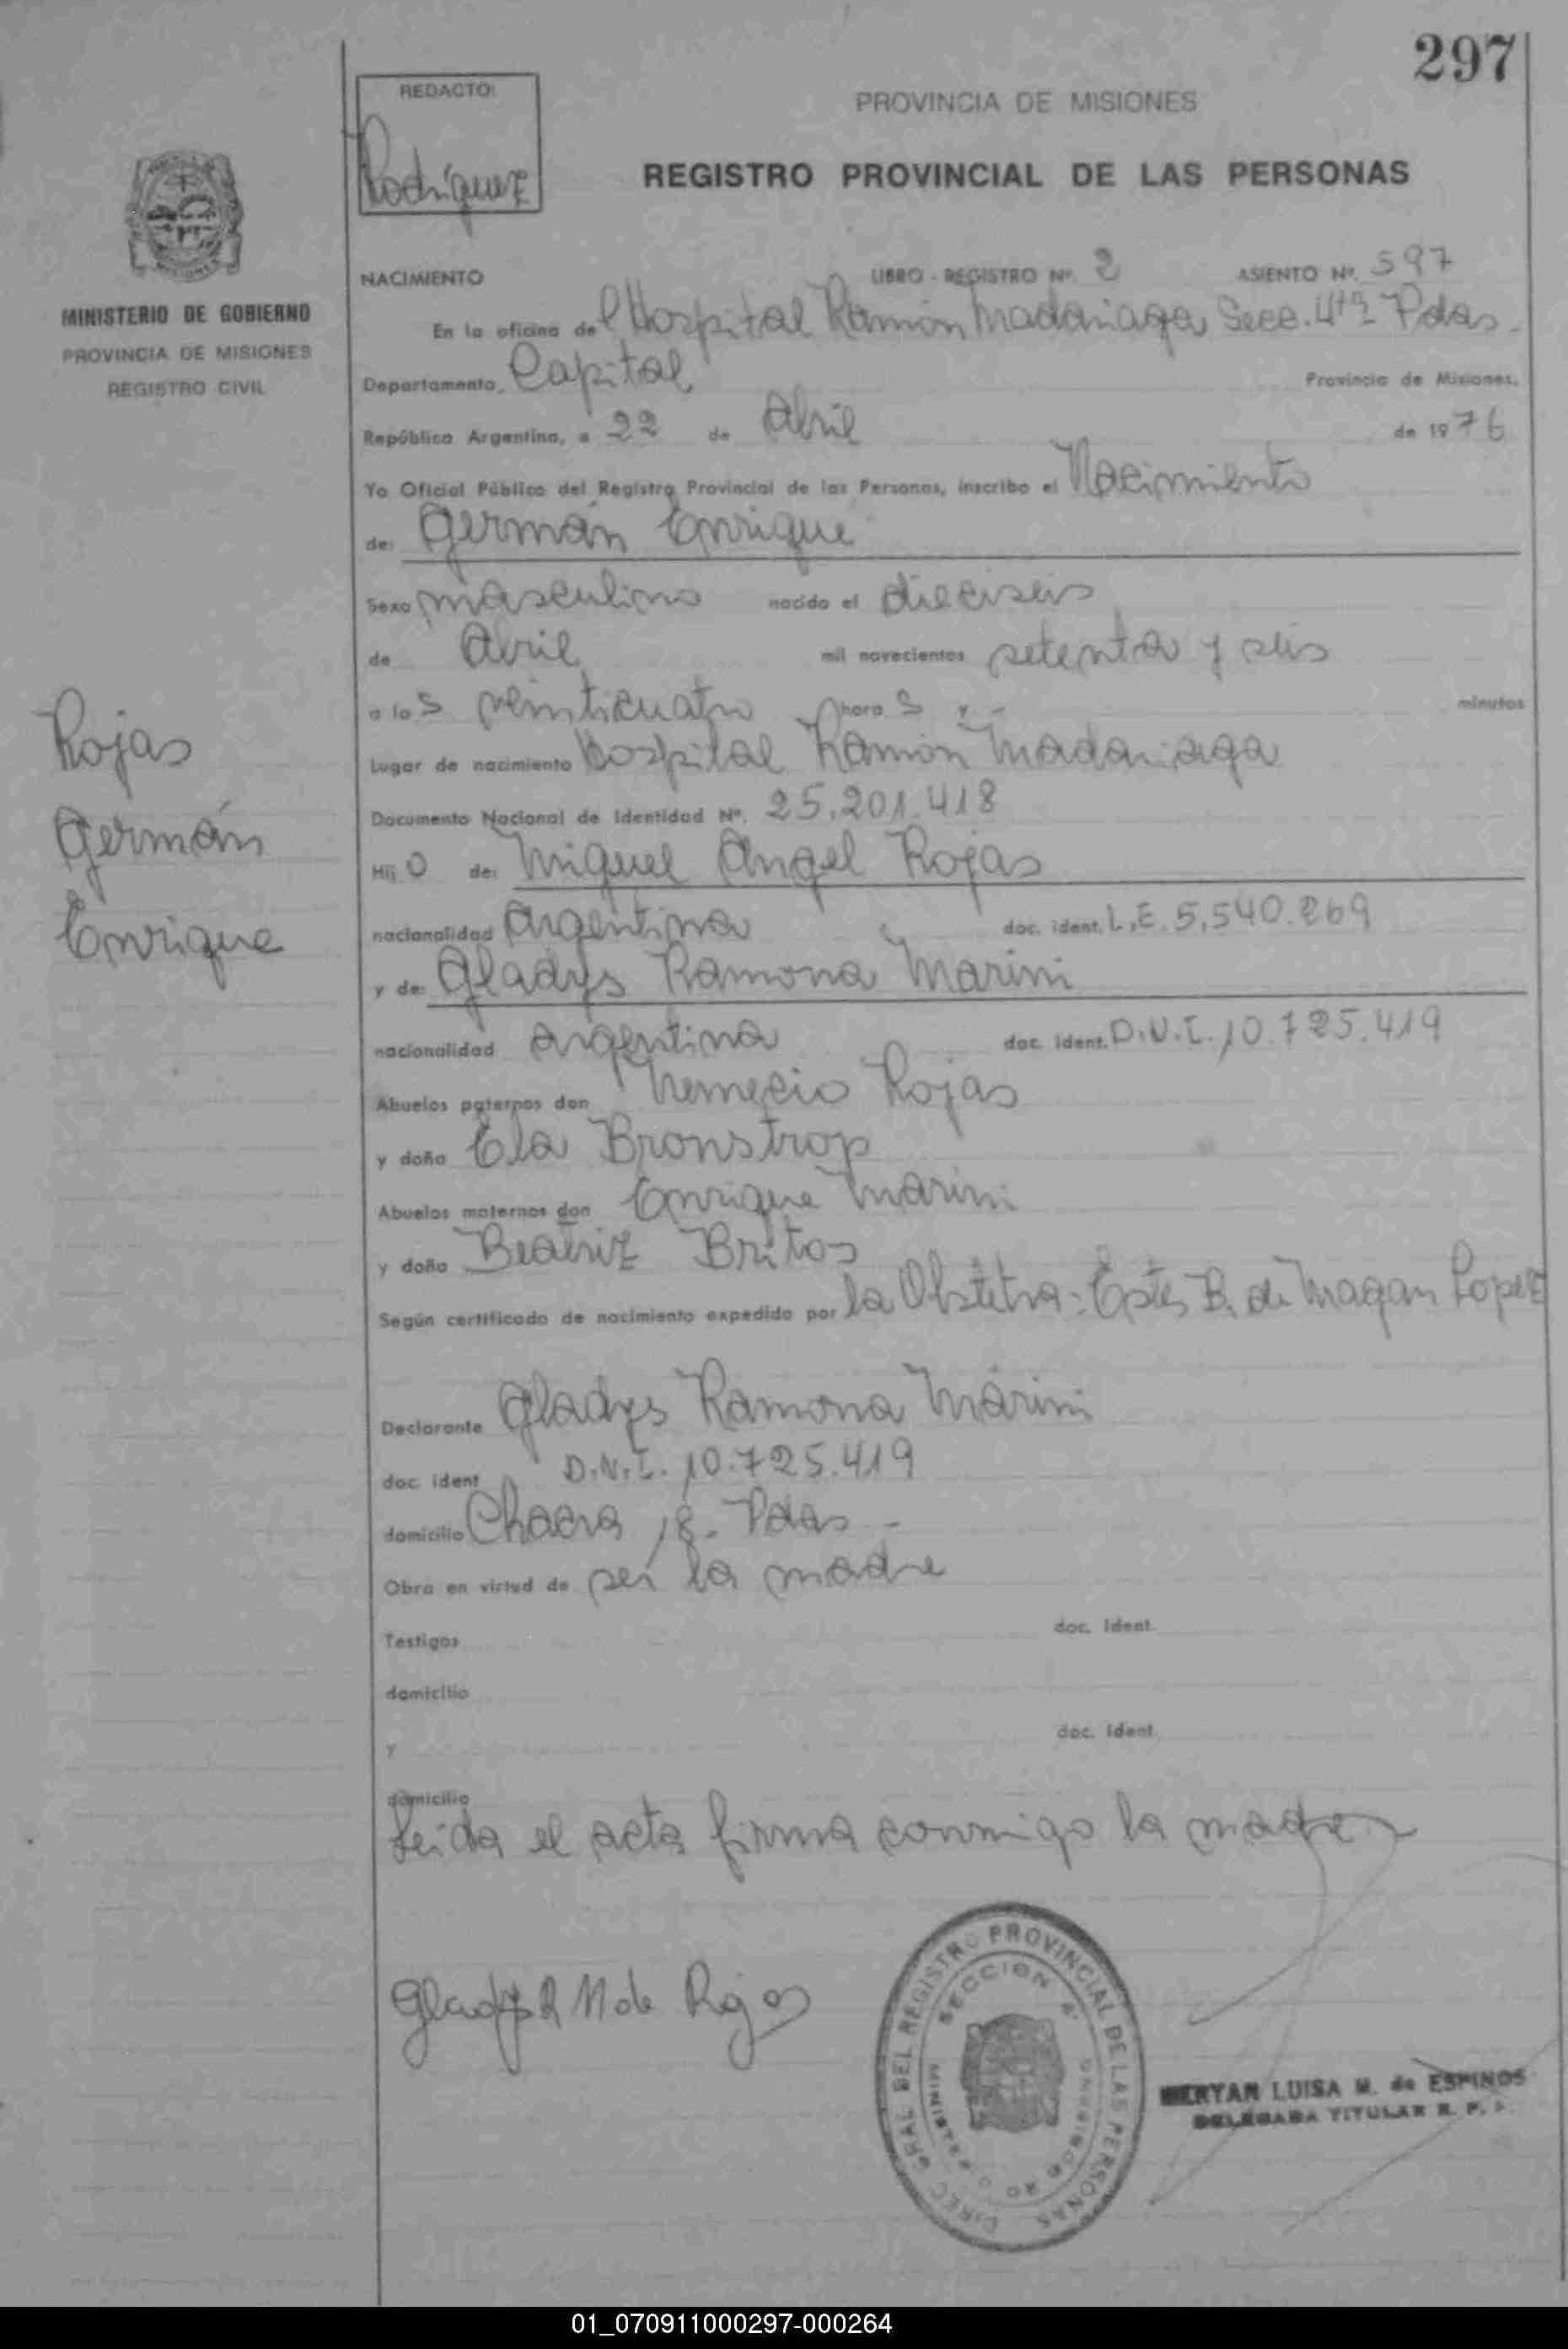 297
REDACTO:
Rodríguez
PROVINCIA DE MISIONES
REGISTRO PROVINCIAL DE LAS PERSONAS
MINISTERIO DE GOBIERNO
PROVINCIA DE MISIONES
REGISTRO CIVIL
NACIMIENTO LIBRO - REGISTRO Nº. 2 ASIENTO Nº. 597
En la oficina del Hospital Ramón Madariaga Secc. 4ta Pdas.
Departamento, Capital Provincia de Misiones,
República Argentina, a 22 de Abril de 1976
Yo Oficial Público del Registro Provincial de las Personas, inscribo el Nacimiento
de: Germán Enrique
Sexo masculino nacido el dieciseis
de Abril mil novecientos setenta y seis
a las veinticuatro horas y - minutos
Lugar de nacimiento Hospital Ramón Madariaga
Documento Nacional de Identidad Nº. 25.201.418
Hijo de: Miguel Angel Rojas
nacionalidad Argentina doc. ident. L.E. 5.540.269
y de: Gladys Ramona Marini
nacionalidad argentina doc. ident. D.N.I. 10.725.419
Abuelos paternos don Nemecio Rojas
y doña Ela Bronstrop
Abuelos maternos don Enrique Marini
y doña Beatriz Britos
Según certificado de nacimiento expedido por la Obstetra: B. de Magan Lopez
Declarante Gladys Ramona Marini
doc. ident D.N.I. 10.725.419
domicilio Chacra 18. Pdas -
Obra en virtud de ser la madre
Testigos doc. Ident.
domicilio
y doc. Ident.
domicilio
Leida el acta firma conmigo la madre
Rojas
Germán
Enrique
Gladys R M de Rojas
DIREC. GRAL. DEL REGISTRO PROVINCIAL DE LAS PERSONAS
SECCION 4ª
MINISTERIO DE GOBIERNO
MERYAN LUISA M. de ESPINOS
DELEGADA TITULAR R. P. P.
01_070911000297-000264